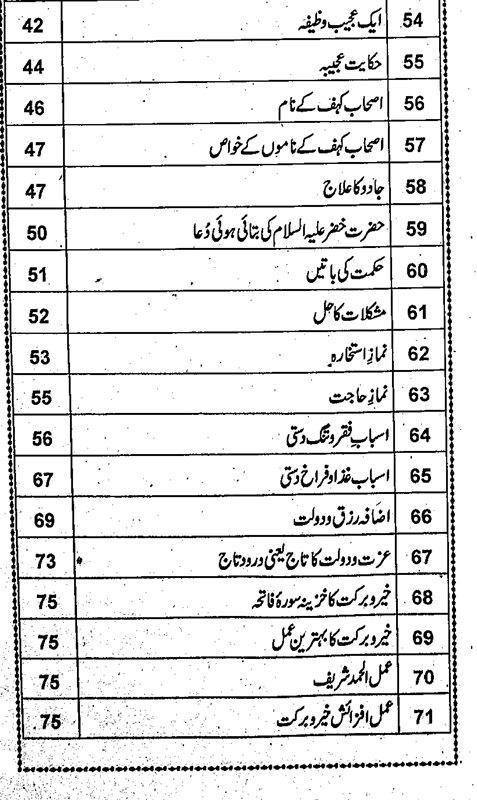 54 ایک عجیب وظیفہ 42
55 حکایت عجیبہ 44
56 اصحاب کہف کے نام 46
57 اصحاب کہف کے ناموں کے خواص 47
58 جادو کا علاج 47
59 حضرت خضر علیہ السلام کی بتائی ہوئی دُعا 50
60 حکمت کی باتیں 51
61 مشکلات کا حل 52
62 نمازِ استخارہ 53
63 نمازِ حاجت 55
64 اسبابِ فقر و تنگ دستی 56
65 اسباب غذا و فراخ دستی 67
66 اضافہ رزق و دولت 69
67 عزت و دولت کا تاج یعنی درود تاج 73
68 خیر و برکت کا خزینہ سورۂ فاتحہ 75
69 خیر و برکت کا بہترین عمل 75
70 عمل الحمد شریف 75
71 عمل افزائش خیر و برکت 75